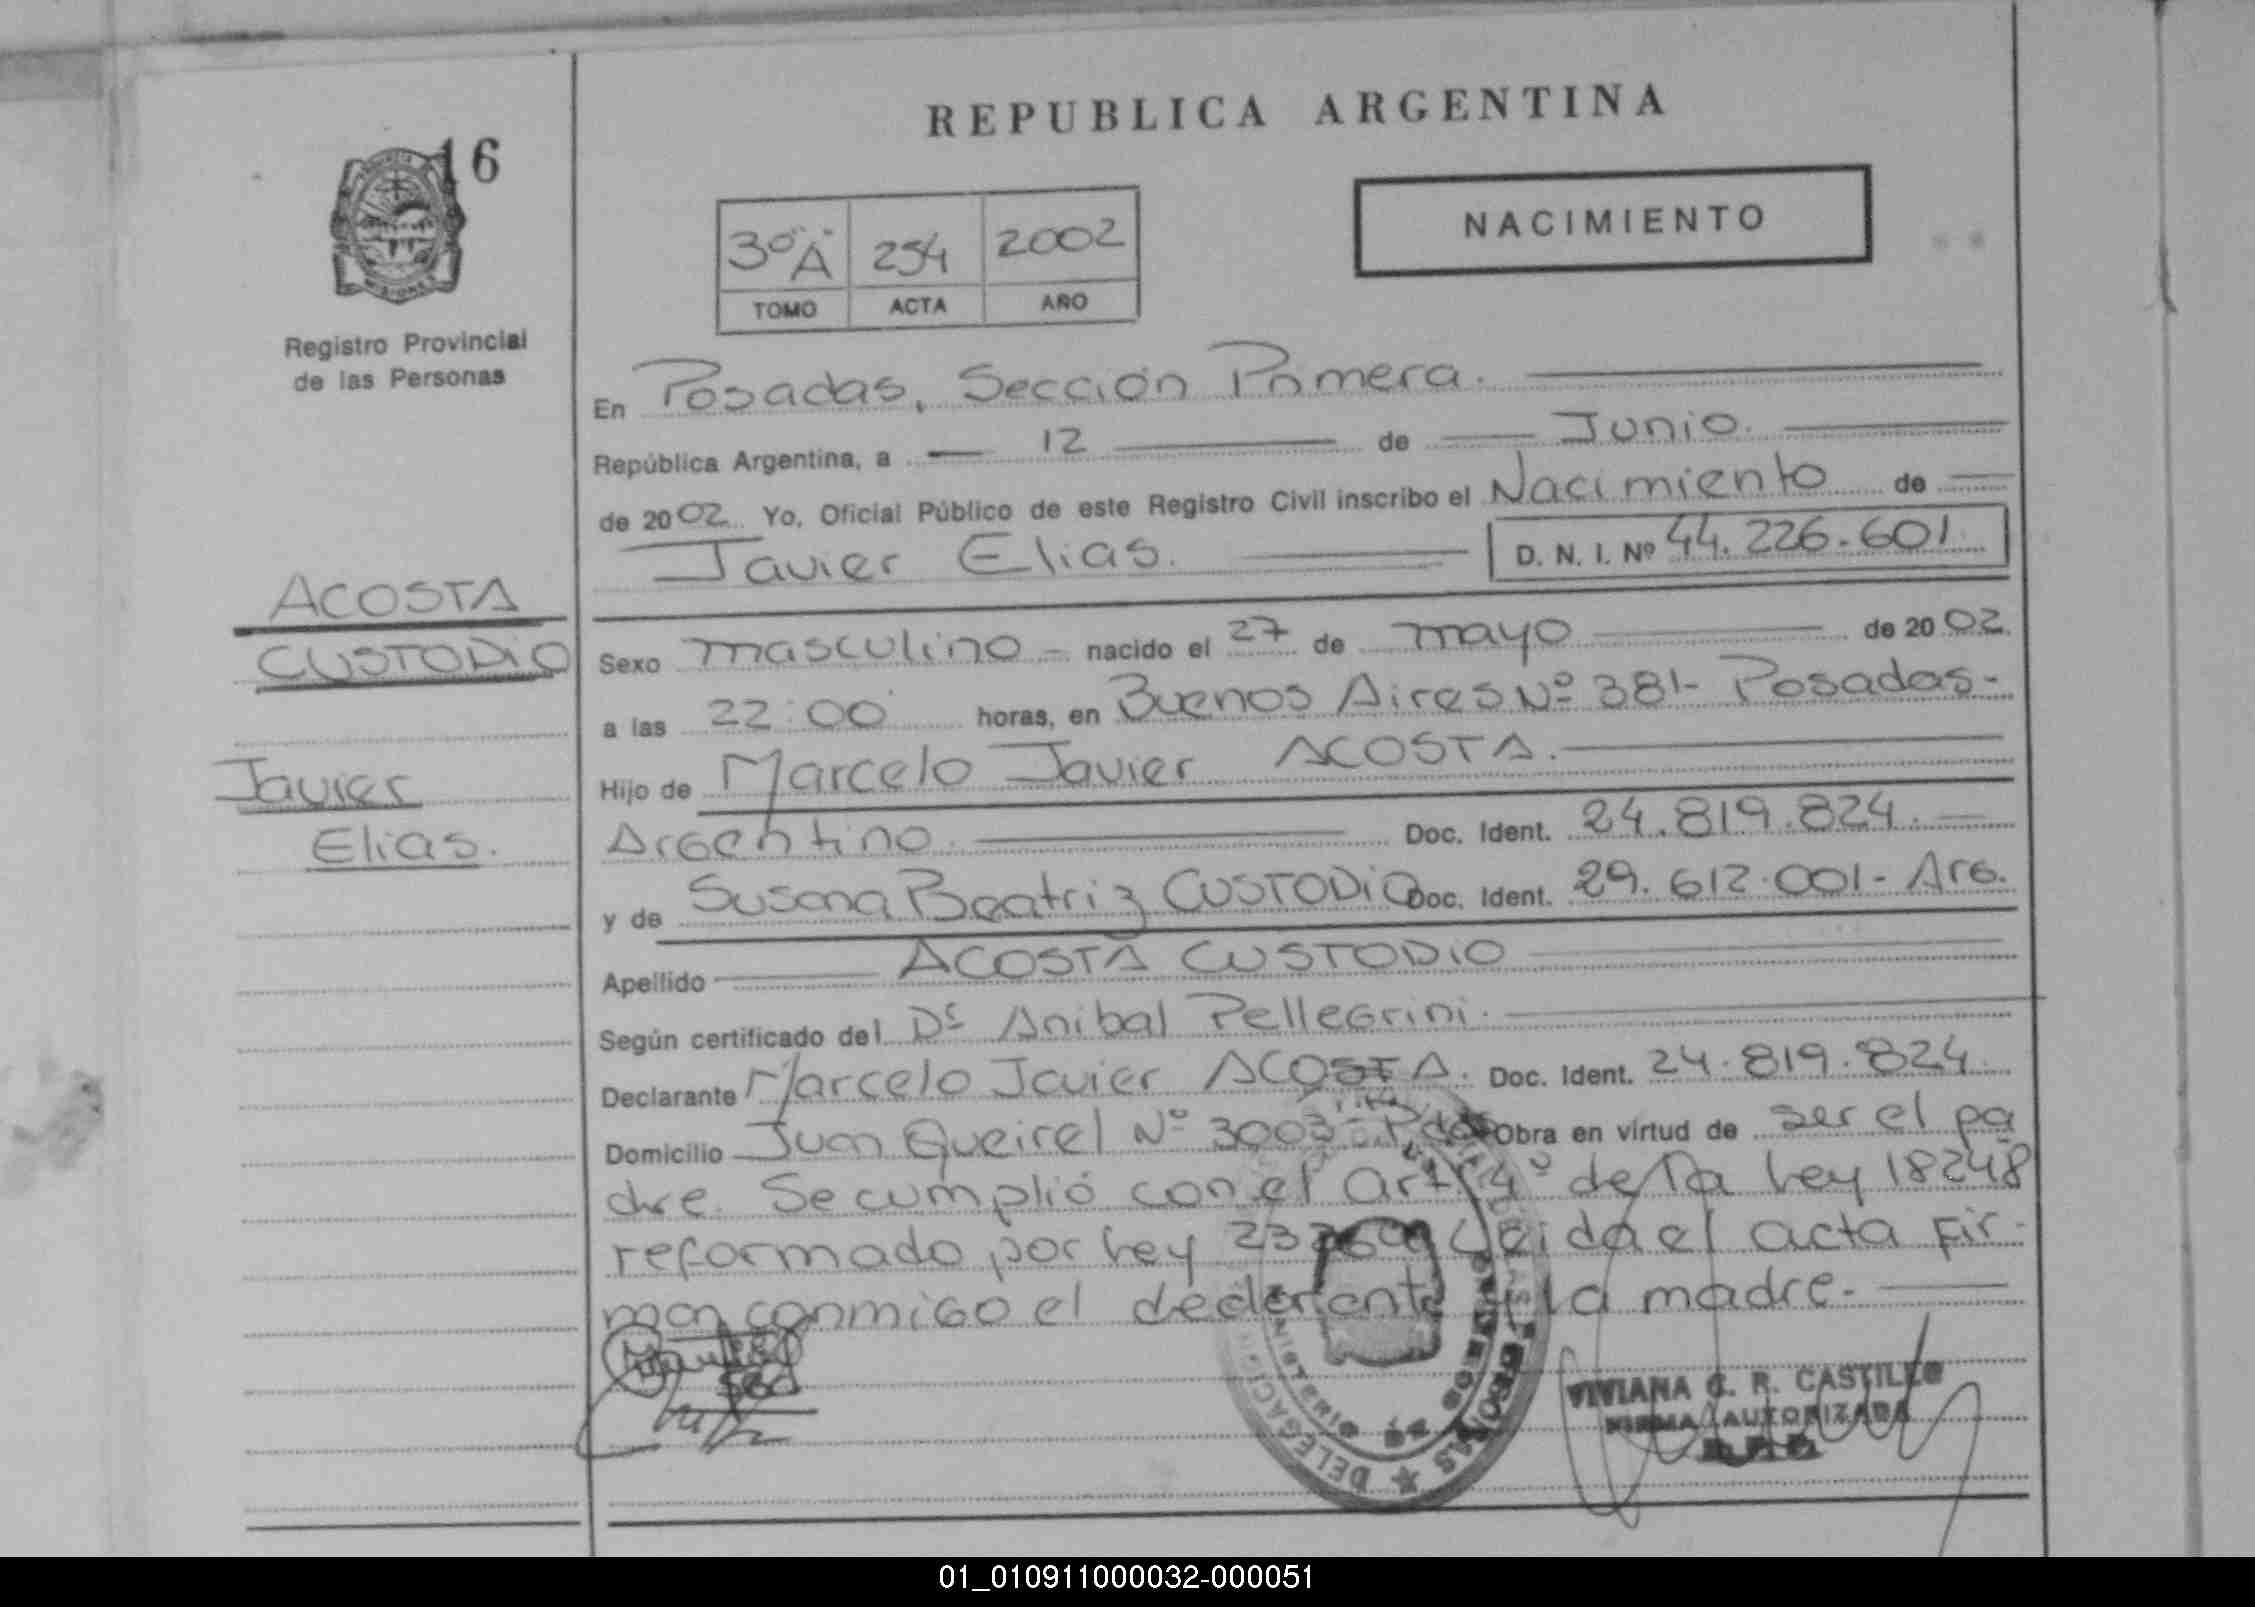 REPUBLICA ARGENTINA
16
NACIMIENTO
3º"A" 254 2002
TOMO ACTA AÑO
MISIONES
Registro Provincial
de las Personas
En Posadas, Sección Primera.
República Argentina, a 12 de Junio.
de 2002 Yo, Oficial Público de este Registro Civil inscribo el Nacimiento de
Javier Elias. D. N. I. Nº 44.226.601.
ACOSTA
CUSTODIO
Javier
Elias.
Sexo masculino - nacido el 27 de mayo de 2002.
a las 22:00 horas, en Buenos Aires Nº 381- Posadas-
Hijo de Marcelo Javier ACOSTA.
Argentino. Doc. Ident. 24.819.824.
y de Susana Beatriz CUSTODIO Doc. Ident. 29.612.001- Arg.
Apellido ACOSTA CUSTODIO
Según certificado del Dr Anibal Pellegrini.
Declarante Marcelo Javier ACOSTA. Doc. Ident. 24.819.824
Domicilio Juan Queirel Nº 3003- Pdas Obra en virtud de ser el pa
dre. Se cumplió con el art 4º de la Ley 18248
reformado por Ley Leida el acta Fir-
man conmigo el declarante y la madre.-
DELEGACION
VIVIANA G. R. CASTILLO
FIRMA AUTORIZADA
01_010911000032-000051